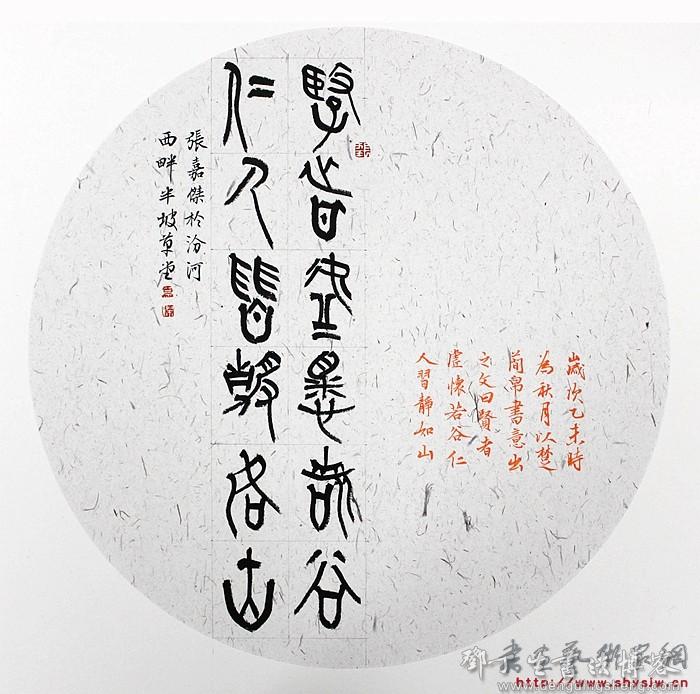 賢者虛懷若谷
仁人習靜如山
張嘉傑於汾河
西畔半坡草堂
歲次乙未時
為秋月以楚
簡帛書意出
之文曰賢者
虛懷若谷仁
人習靜如山
http://www.shxsjw.cn